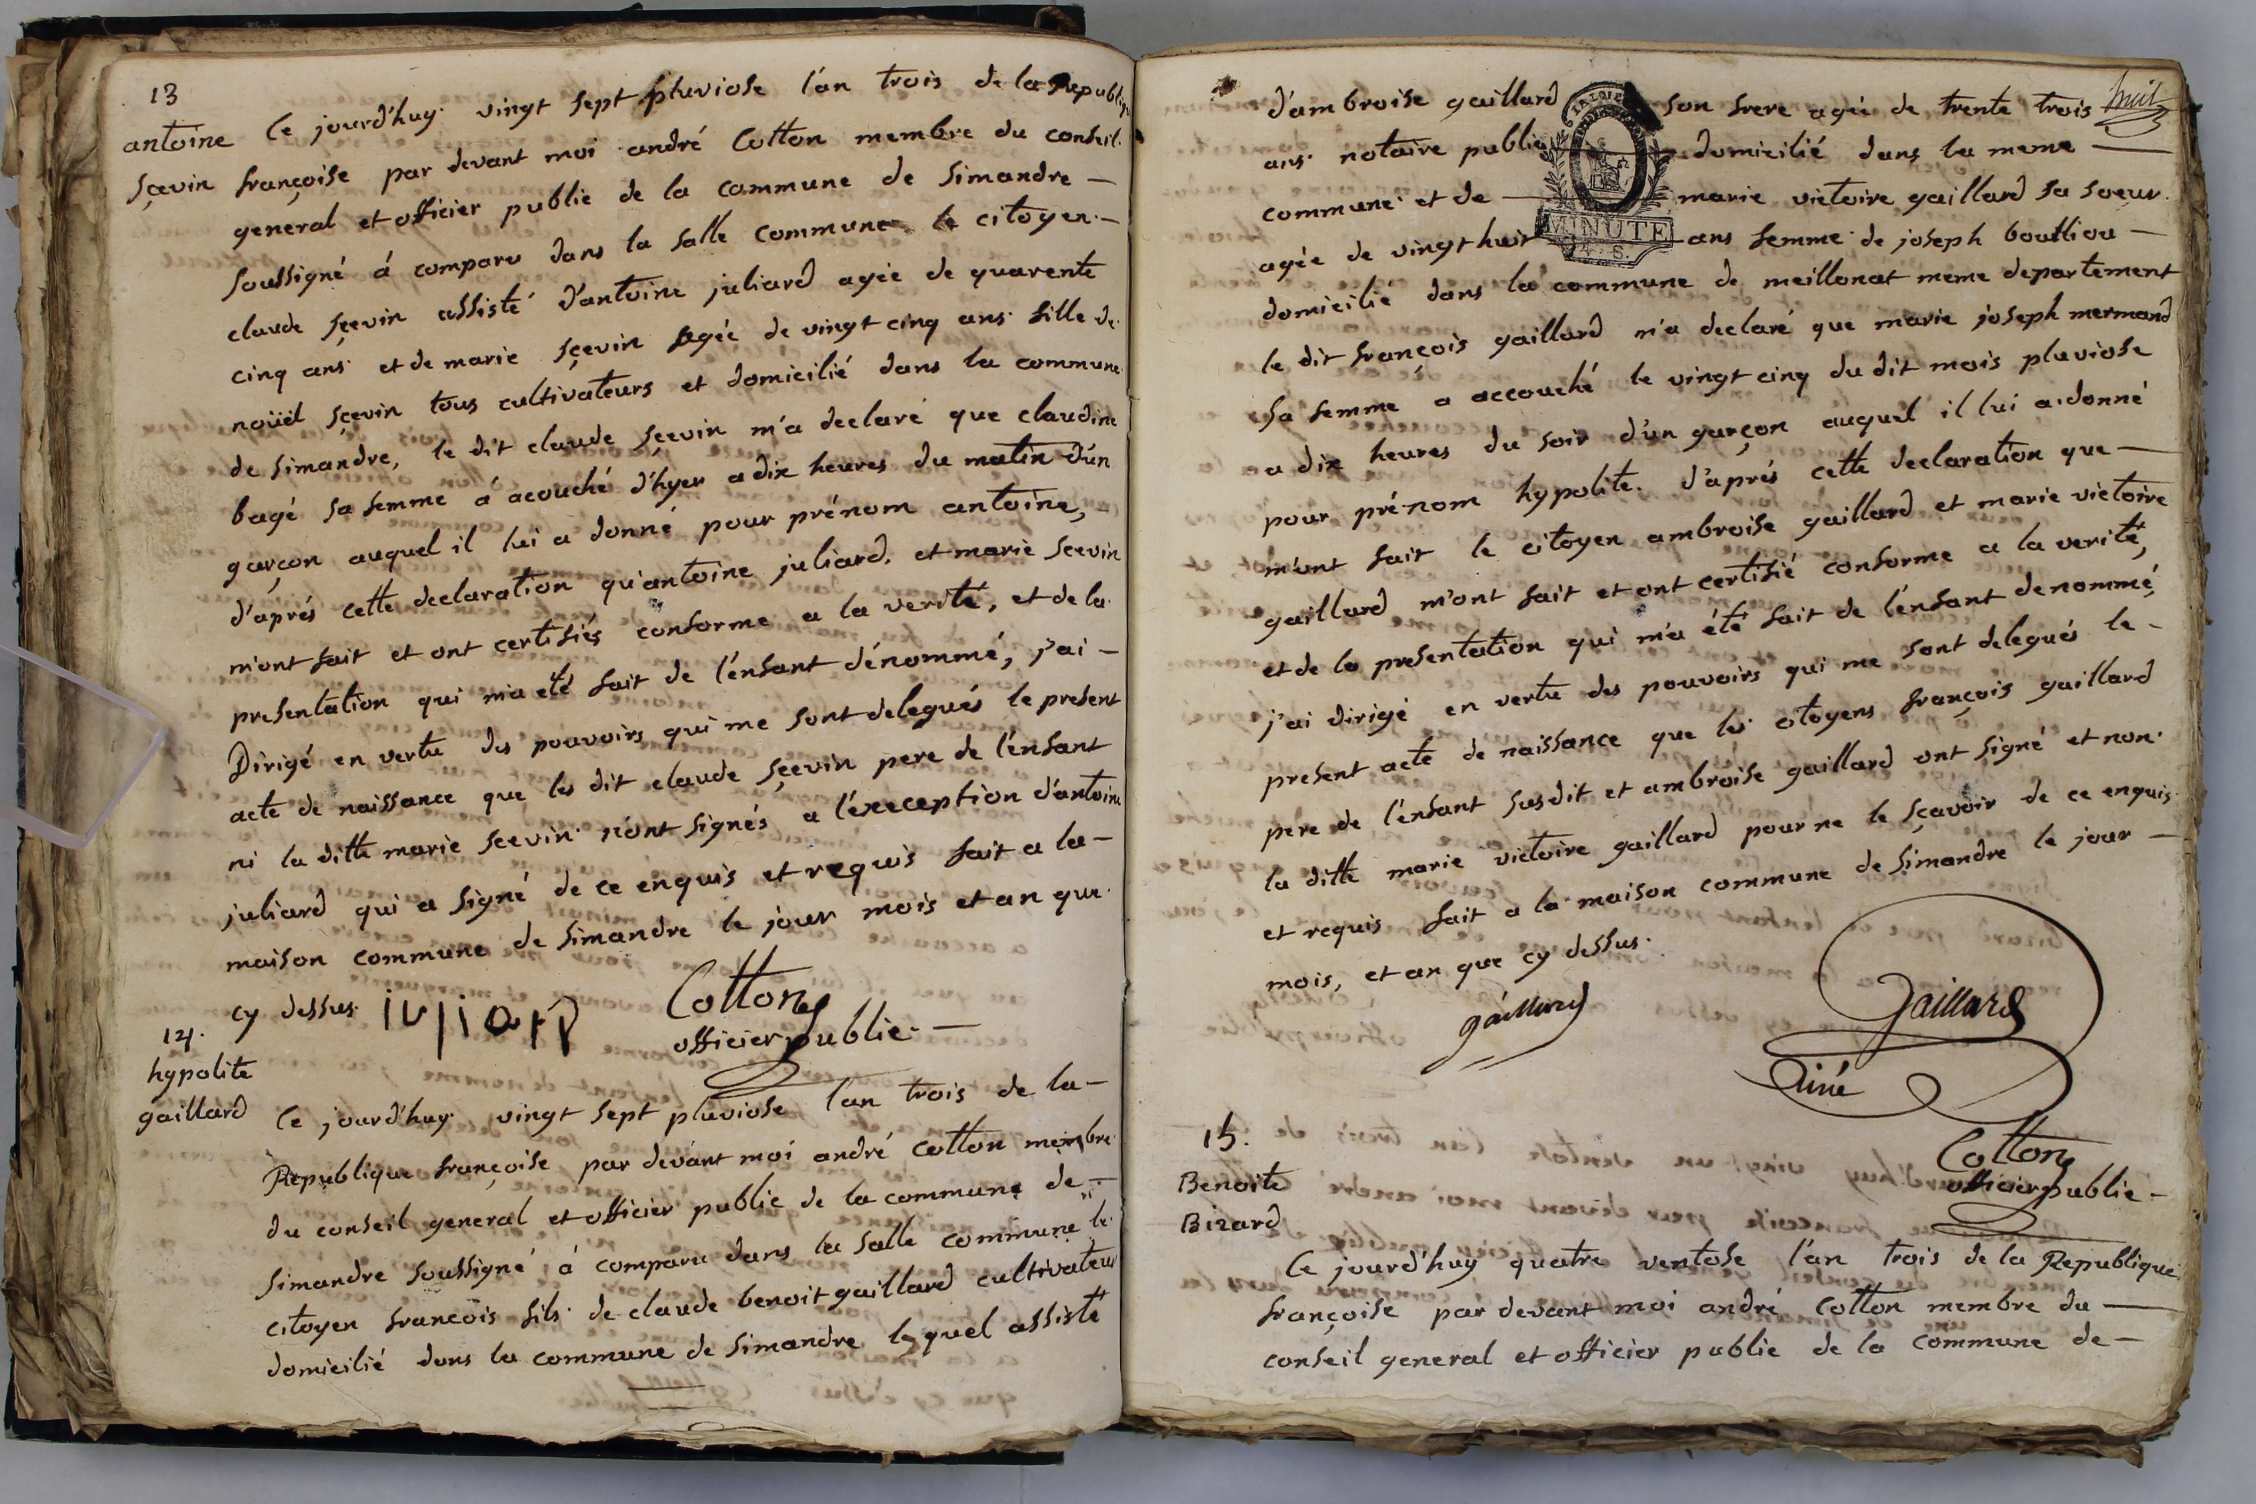 13
antoine
sçevin
Ce jourd'huy vingt sept pluviose l'an trois de la Republique
françoise par devant moi andré Cotton membre du conseil
general et officier public de la commune de simandre —
soussigné á comparu dans la salle commune le citoyen —
claude sçevin assisté d'antoine juliard agée de quarente
cinq ans et de marie sçevin agée de vingt cinq ans fille de
noüel sçevin tous cultivateurs et domicilié dans la commune
de simandre, le dit claude sçevin m'a declaré que claudine
bagé sa femme á acouché d'hyer a dix heures du matin d'un
garçon auquel il lui a donné pour prénom antoine,
d'aprés cette declaration qu'antoine juliard. et marie scevin
m'ont fait et ont certifiés conforme a la verité, et de la
presentation qui m'a eté fait de l'enfant dénommé, j'ai —
Dirigé en vertu des pouvoirs qui me sont delegués le present
acte de naissance que les dit claude sçevin pere de l'enfant
ni la ditte marie scevin n'ont signés a l'exeception d'antoine
juliard qui a signé de ce enquis et requis fait a la —
maison commune de simandre le jour mois et an que
cy dessus. juliard
Cotton
officier public. —
14.
hypolite
gaillard
Ce jourd'huy vingt sept pluviose l'an trois de la —
Republique françoise par devant moi andré cotton membre
du conseil general et officier public de la commune de —
simandre soussigné á comparu dans la salle commune le
citoyen francois fils de claude benoit gaillard cultivateur
domicilié dans la commune de simandre lequel assisté
huit
d'ambroise gaillard son frere agée de trente trois
ans notaire public domicilié dans la meme —
commune et de — marie victoire gaillard sa soeur
MINUTE
4. S.
agée de vingt huit — ans femme de joseph boutliou —
domicilié dans la commune de meillonat meme departement
le dit françois gaillard m'a declaré que marie joseph mermand
sa femme a accouché le vingt cinq du dit mois pluviose
a dix heures du soir d'un garçon auquel il lui a donné
pour pré-nom hypolite. d'aprés cette declaration que —
m'ont fait le citoyen ambroise gaillard et marie victoire
gaillard m'ont fait et ont certifié conforme a la verité,
et de la presentation qui m'a été fait de l'enfant denommé,
j'ai dirigé en vertu des pouvoirs qui me sont delegués le —
present acte de naissance que les citoyens françois gaillard
pere de l'enfant susdit et ambroise gaillard ont signé et non
la ditte marie victoire gaillard pour ne le sçavoir de ce enquis
et requis fait a la maison commune de simandre le jour —
mois, et an que cy dessus.
gaillard
Gaillard
ainé
Cotton
officier public —
15.
Benoite
Bizard
Ce jourd'huy quatre ventose l'an trois de la Republique
françoise par devant moi andré cotton membre du —
conseil general et officier public de la commune de —